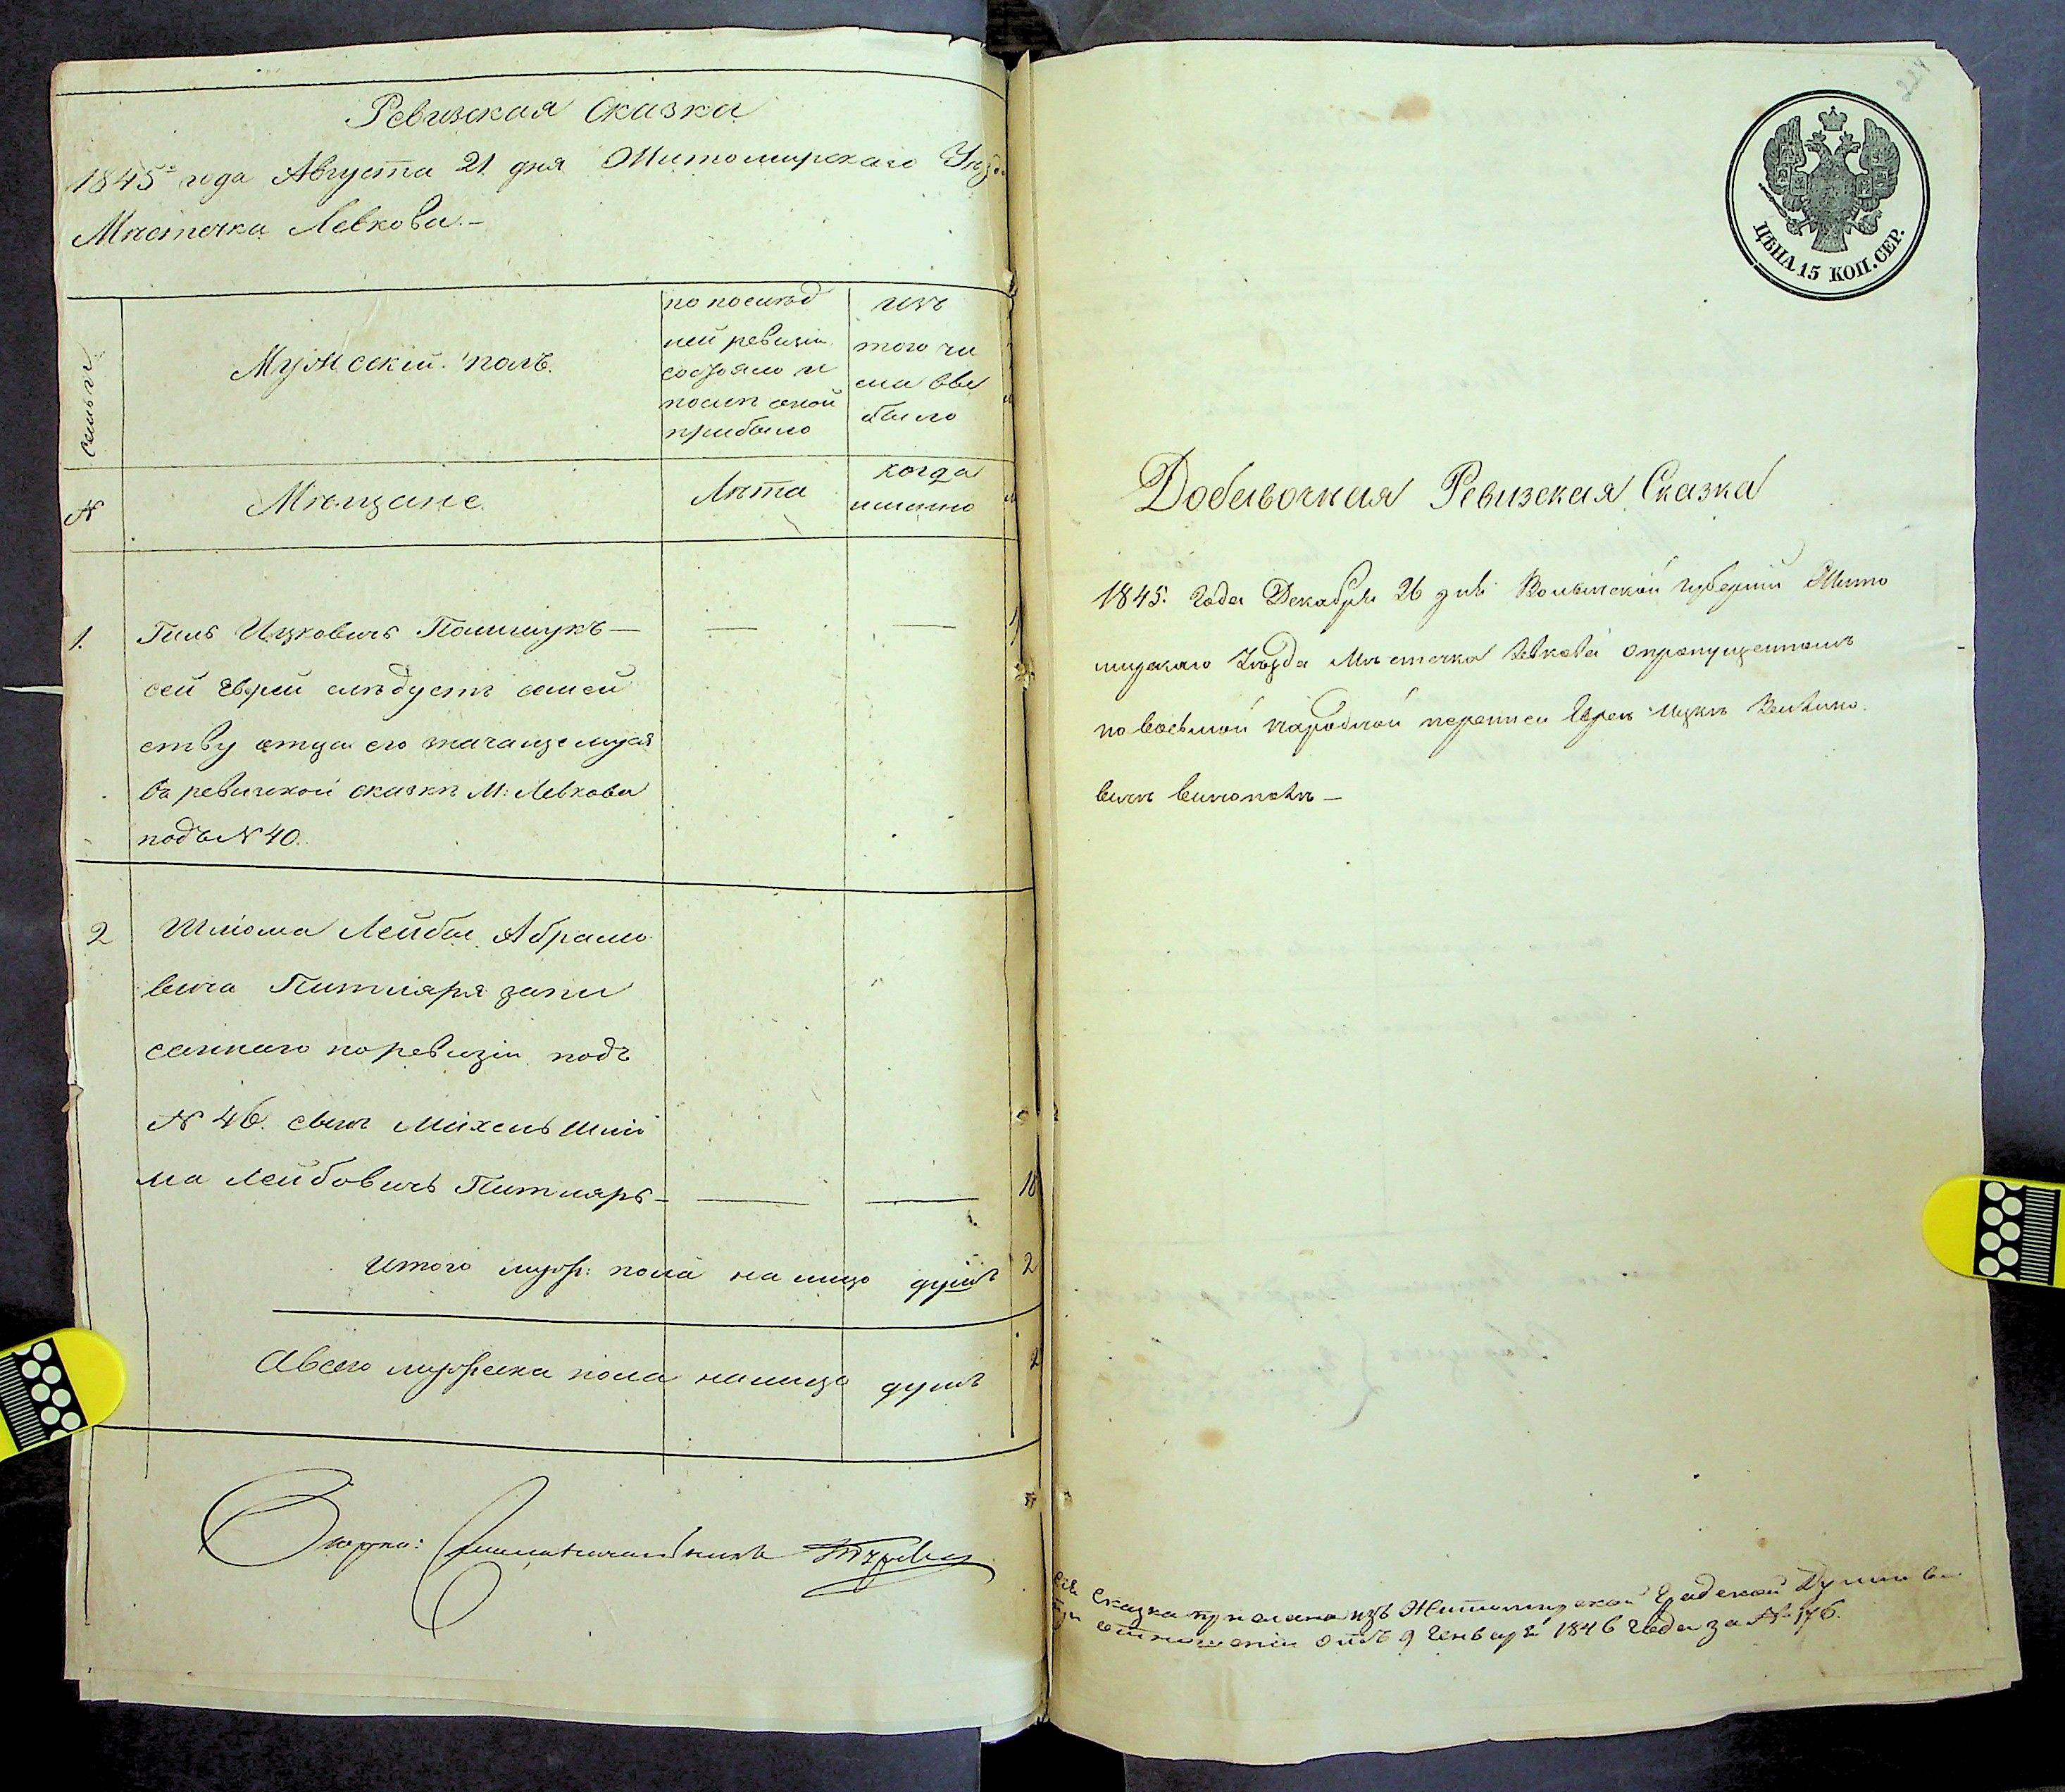 Ревизская Сказка
1845го года Августа 21 дня Житомирскаго Уѣзда
Мѣстечка Левкова.-
семьи
Мужескій полъ.
по послѣд
ней ревизіи
состояло и
послѣ оной
прибыло
изъ
того чи
сла вы
было
N
Мѣщане.
Лѣта
когда
имянно
1. Гиль Ицковичъ Полищукъ —
сей Еврей слѣдуетъ семей
ству отца его значащемуся
въ ревизской сказкѣ М: Левкова
подъ N 40.
2 Шліома Лейба Абрамо
вича Питляря запи
саннаго по ревизіи подъ
N 46. сынъ Михель Шліо
ма Лейбовичъ Питляръ — 18
Итого муж: пола на лицо душъ 2
А всего мужеска пола на лицо душъ 2
224
ЦѢНА 15 КОП. СЕР.
Добавочная Ревизская Сказка
1845. года Декабря 26 дня Волынской губерніи Жито
мирскаго Уѣзда Мѣстечка Левкова о пропущенномъ
по восьмой народной переписи Евреѣ Ицкѣ
Сія Сказка прислана изъ Житомирской Градской Думы
при отношеніи отъ 9 Генваря 1846 года за № 176.